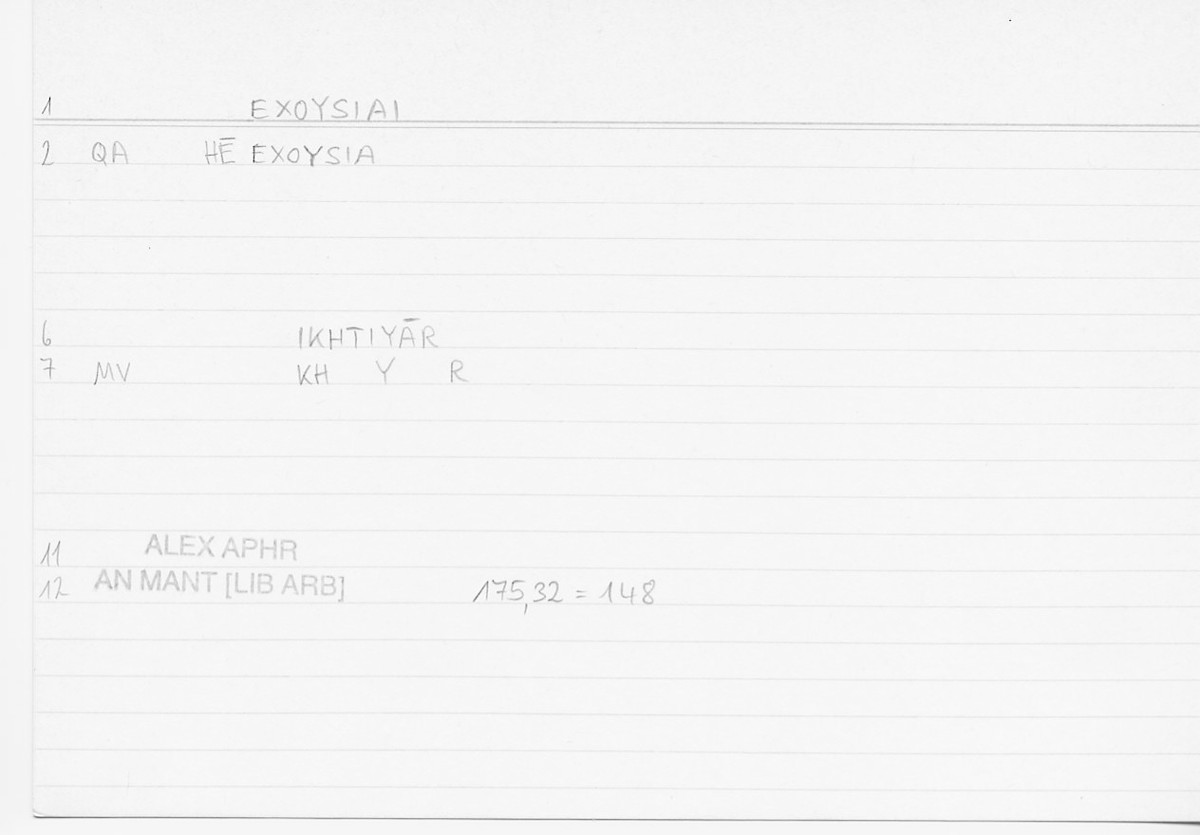 1 EXOYSIAI
2 QA HĒ EXOYSIA
6 IKHTIYĀR
7 MV KH Y R
11 ALEX APHR
12 AN MANT [LIB ARB] 175,32 = 148